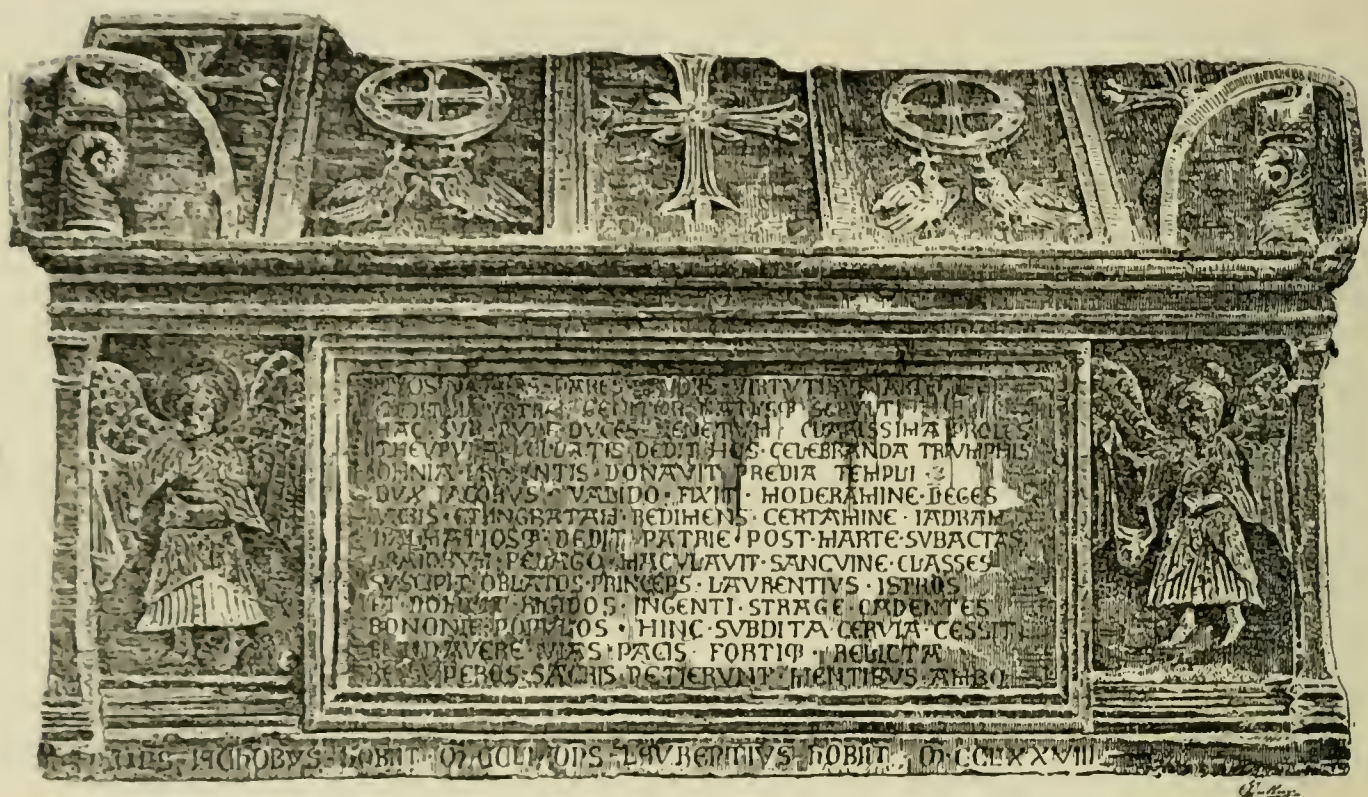 QVOS NATVRA PARES STVDIIS VIRTVTIBVS ARTE
EDIDIT ILLVSTRES GENITOR NATVSQ SEPVLTI
HAC SVB RVPE DVCES VENETVM CLARISSIMA PROLES
THEVPVLA COLLATIS DEDIT HOS CELEBRANDA TRIVMPHIS
OMNIA PRESENTIS DONAVIT PREDIA TEMPLI
DVX IACOBVS · VALIDO · FIXIT · MODERAMINE · LEGES
VRBIS · ET INGRATAM · REDIMENS · CERTAMINE · IADRAM
DALMATIOSQ · DEDIT · PATRIE · POST · MARTE · SVBACTAS
GRAIORVM · PELAGO · MACVLAVIT · SANGVINE · CLASSES
SVSCIPIT · OBLATOS · PRINCEPS · LAVRENTIVS · ISTROS
ET DOMVIT · RIGIDOS · INGENTI · STRAGE · CADENTES
BONONIE · POPVLOS · HINC · SVBDITA · CERVIA · CESSIT
FVNDAVERE · VIAS · PACIS · FORTIQ · RELICTA
RE · SVPEROS · SACRIS · PETIERVNT · MENTIBVS · AMBO
DNS · IACHOBVS · HOBIIT · M · CCLI · DNS · LAVRENTIVS · HOBIIT · M · CCLXXVIII